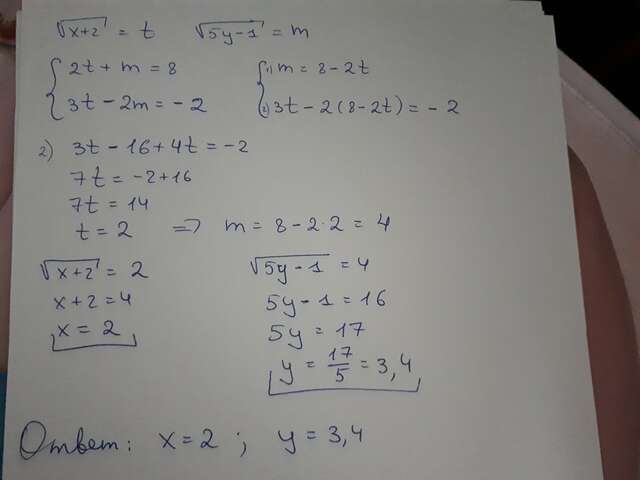 √x+2 = t √5y-1 = m
{2t + m = 8 {1) m = 8 - 2t
{3t - 2m = -2 {2) 3t - 2(8-2t) = -2
2) 3t - 16 + 4t = -2
7t = -2+16
7t = 14
t = 2 => m = 8 - 2·2 = 4
√x+2 = 2 √5y-1 = 4
x+2 = 4 5y-1 = 16
x = 2 5y = 17
y = 17/5 = 3,4
Ответ: x = 2 ; y = 3,4